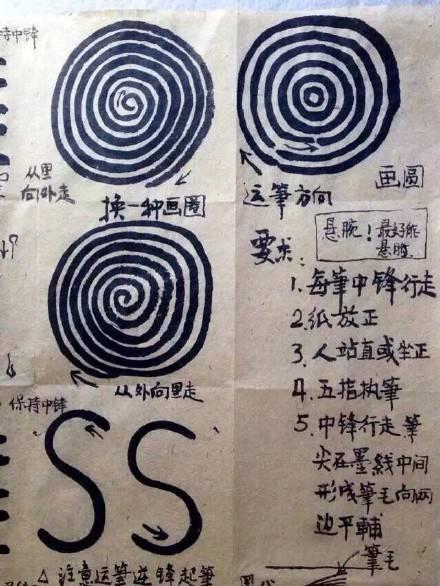 持中锋
从里
向外走
换一种画圈
运筆方向
画圆
悬腕！最好能
悬肘
要求：
1. 每筆中锋行走
2. 纸放正
3. 人站直或坐正
4. 五指执筆
5. 中锋行走筆
尖在墨线中间
形成筆毛向两
边平铺
从外向里走
保持中锋
S S
△ 注意运筆逆锋起筆
筆毛